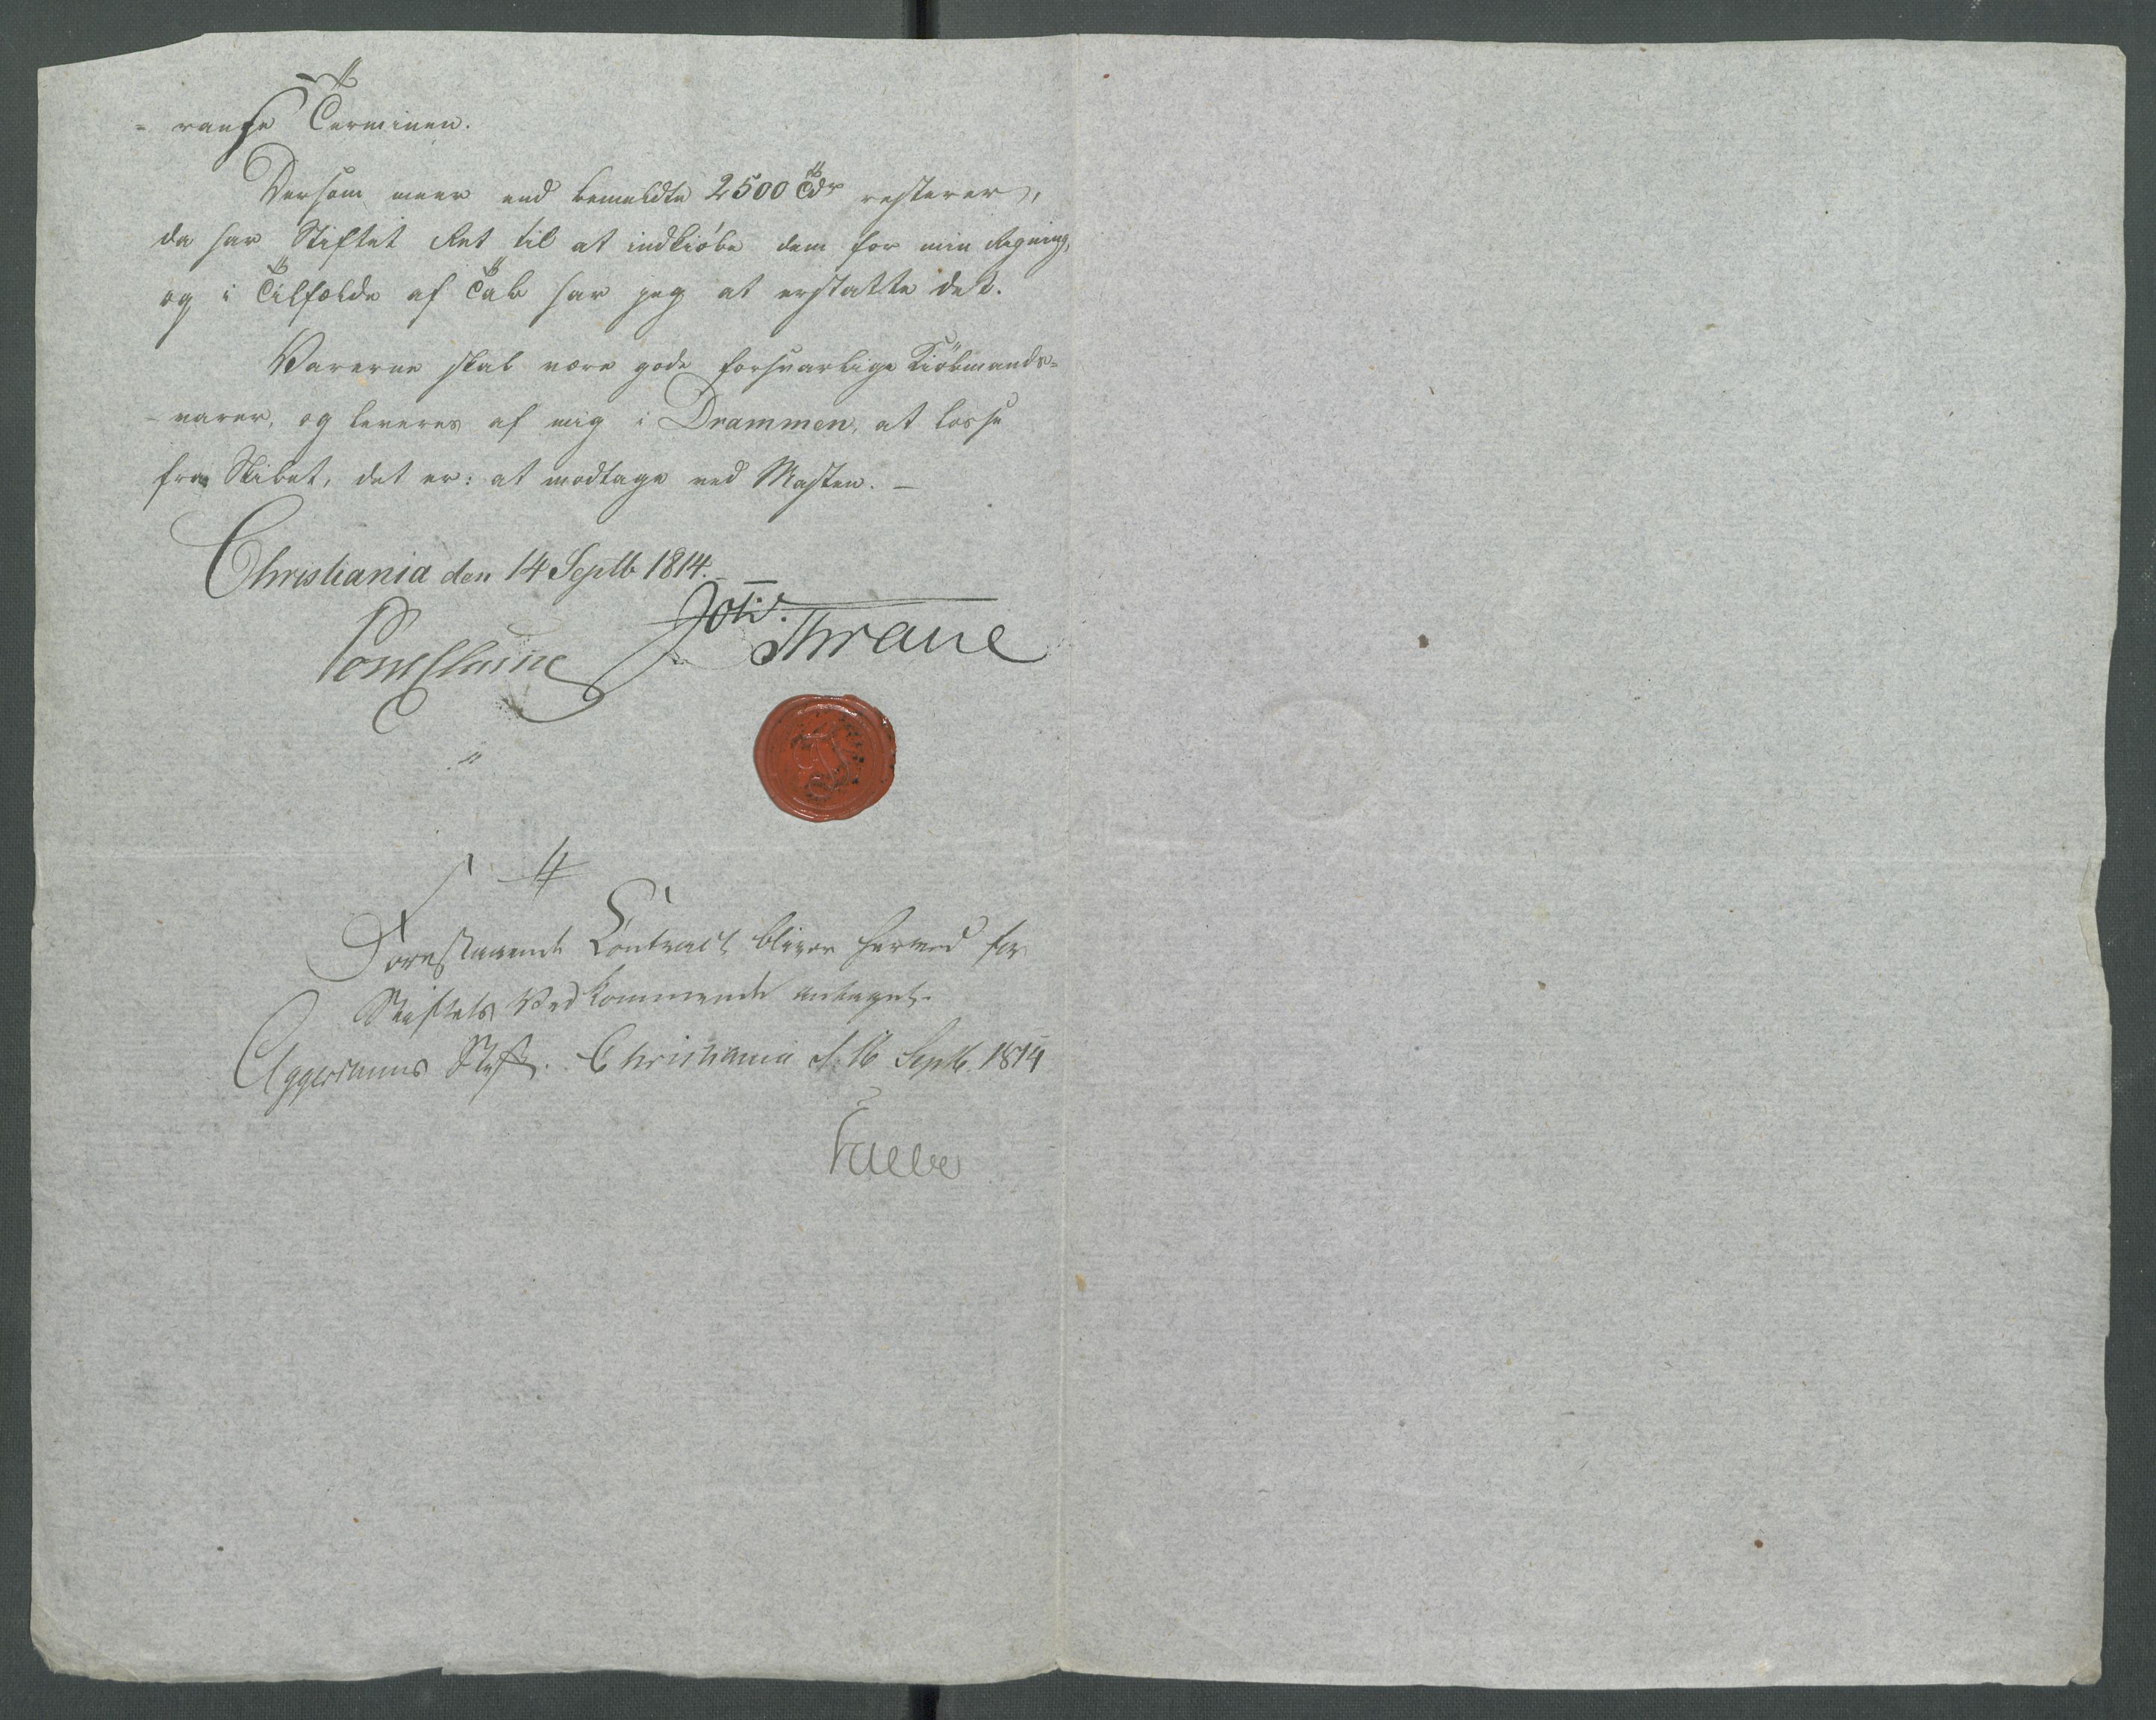 - ranse Terminen.
Dersom meer end bemeldte 2500 Tdr resterer,
da har Stiftet Ret til at indkiøbe dem for min Regning,
og i Tilfælde af Tab har jeg at erstatte det.
Varerne skal være gode forsvarlige Kiöbmands-
- varer, og leveres af mig i Drammen, at losse
fra Skibet, det er: at modtage ved Masten. -
Christiania den 14 Septb 1814.
Thrane
Forestaaende Contract bliver herved for
Stiftets Vedkommende antaget.
Aggershuus Stift. Christiania d. 16 Septb. 1814